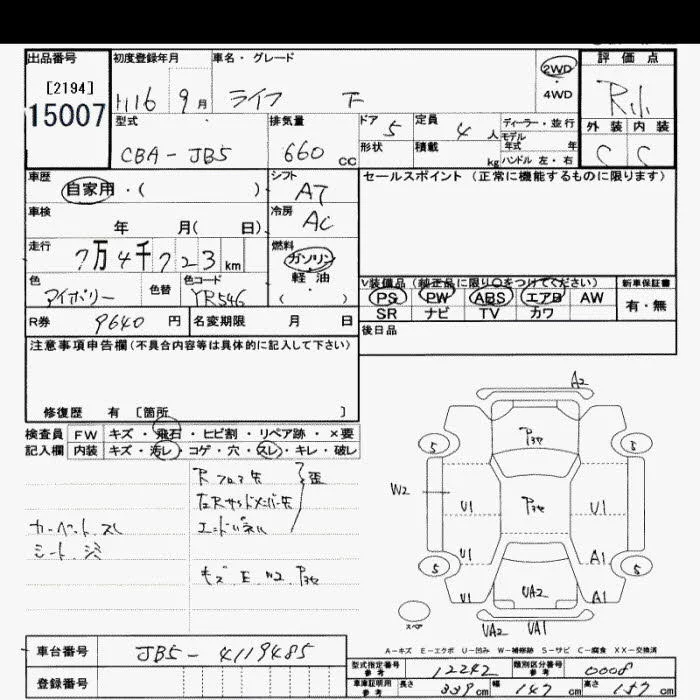 出品番号 初度登録年月 車名・グレード 評価点
[2194] 2WD
15007 H16 9月 ライフ F ・ 4WD
外装 内装
型式 排気量 ドア 定員 ディーラー・並行
CBA-JB5 660CC 5 4人 モデル年式 年
形状 積載 kg ハンドル 左・右 C C
車歴 自家用・( ) シフト AT セールスポイント (正常に機能するものに限ります)
車検 年 月( 日) 冷房 AC
走行 7万4千723km 燃料 ガソリン
軽油
色 アイボリー 色替 色コード YR546 ( )
V装備品 (純正品に限り○をつけてください) 新車保証書
PS PW ABS エアB AW 有・無
SR ナビ TV カワ
R券 9640円 名変期限 月 日
後日品
注意事項申告欄(不具合内容等は具体的に記入して下さい)
修復歴 有 〔箇所 〕
検査員 FW キズ・飛石・ヒビ割・リペア跡・×要
記入欄 内装 キズ・汚レ・コゲ・穴・スレ・キレ・破レ
Rフロア左 歪
左Rサイドメンバー左
カーペット スレ エンドパネル
シート シミ
キズ E W2
A2
5 5
W2 U1 U1
U1 A1
5 5
U1 UA2 A1
スペア UA2 UA1
A-キズ E-エクボ U-凹み W-補修跡 S-サビ C-腐食 XX-交換済
車台番号 JB5-4119485
登録番号
型式指定番号 参考 12242 類別区分番号 参考 0008
車庫証明用 参考 長さ 339cm 幅 147cm 高さ cm